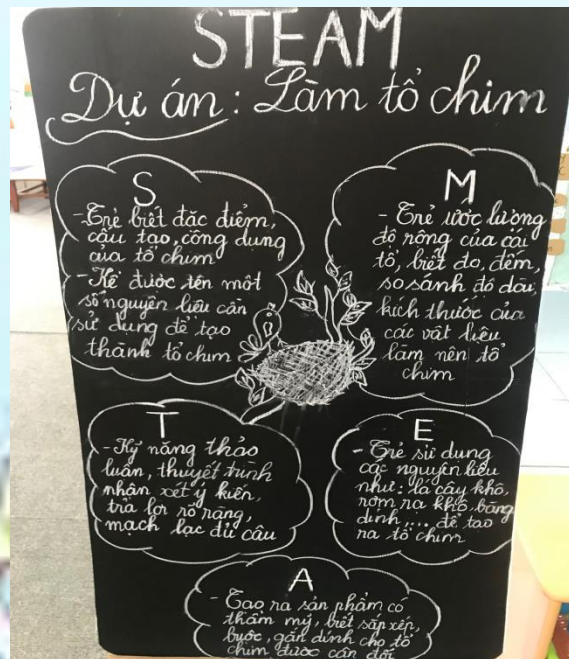 STEAM
Dự án: Làm tổ chim
S
-Trẻ biết đặc điểm,
cấu tạo, công dụng
của tổ chim
-Kể được tên một
số nguyên liệu cần
sử dụng để tạo
thành tổ chim
M
- Trẻ ước lượng
độ rộng của cái
tổ, biết đo, đếm,
so sánh độ dài,
kích thước của
các vật liệu
làm nên tổ
chim
T
-Kỹ năng thảo
luận, thuyết trình
nhận xét ý kiến,
trả lời rõ ràng,
mạch lạc đủ câu
E
- Trẻ sử dụng
các nguyên liệu
như: lá cây khô,
rơm rạ khô, băng
dính .... để tạo
ra tổ chim
A
- Tạo ra sản phẩm có
thẩm mỹ, biết sắp xếp,
buộc, gắn dính cho tổ
chim được cân đối